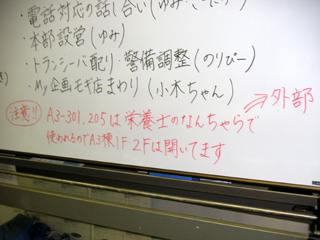 ・電話対応の話し合い(ゆみ・
・本部設営(ゆみ)
・トランシーバ配り・警備調整(のりぴー)
・My企画モギ店まわり(小木ちゃん)
外部
注意!! A3-301,205は栄養士のなんちゃらで
使われるのでA3棟1F 2Fは開いてます